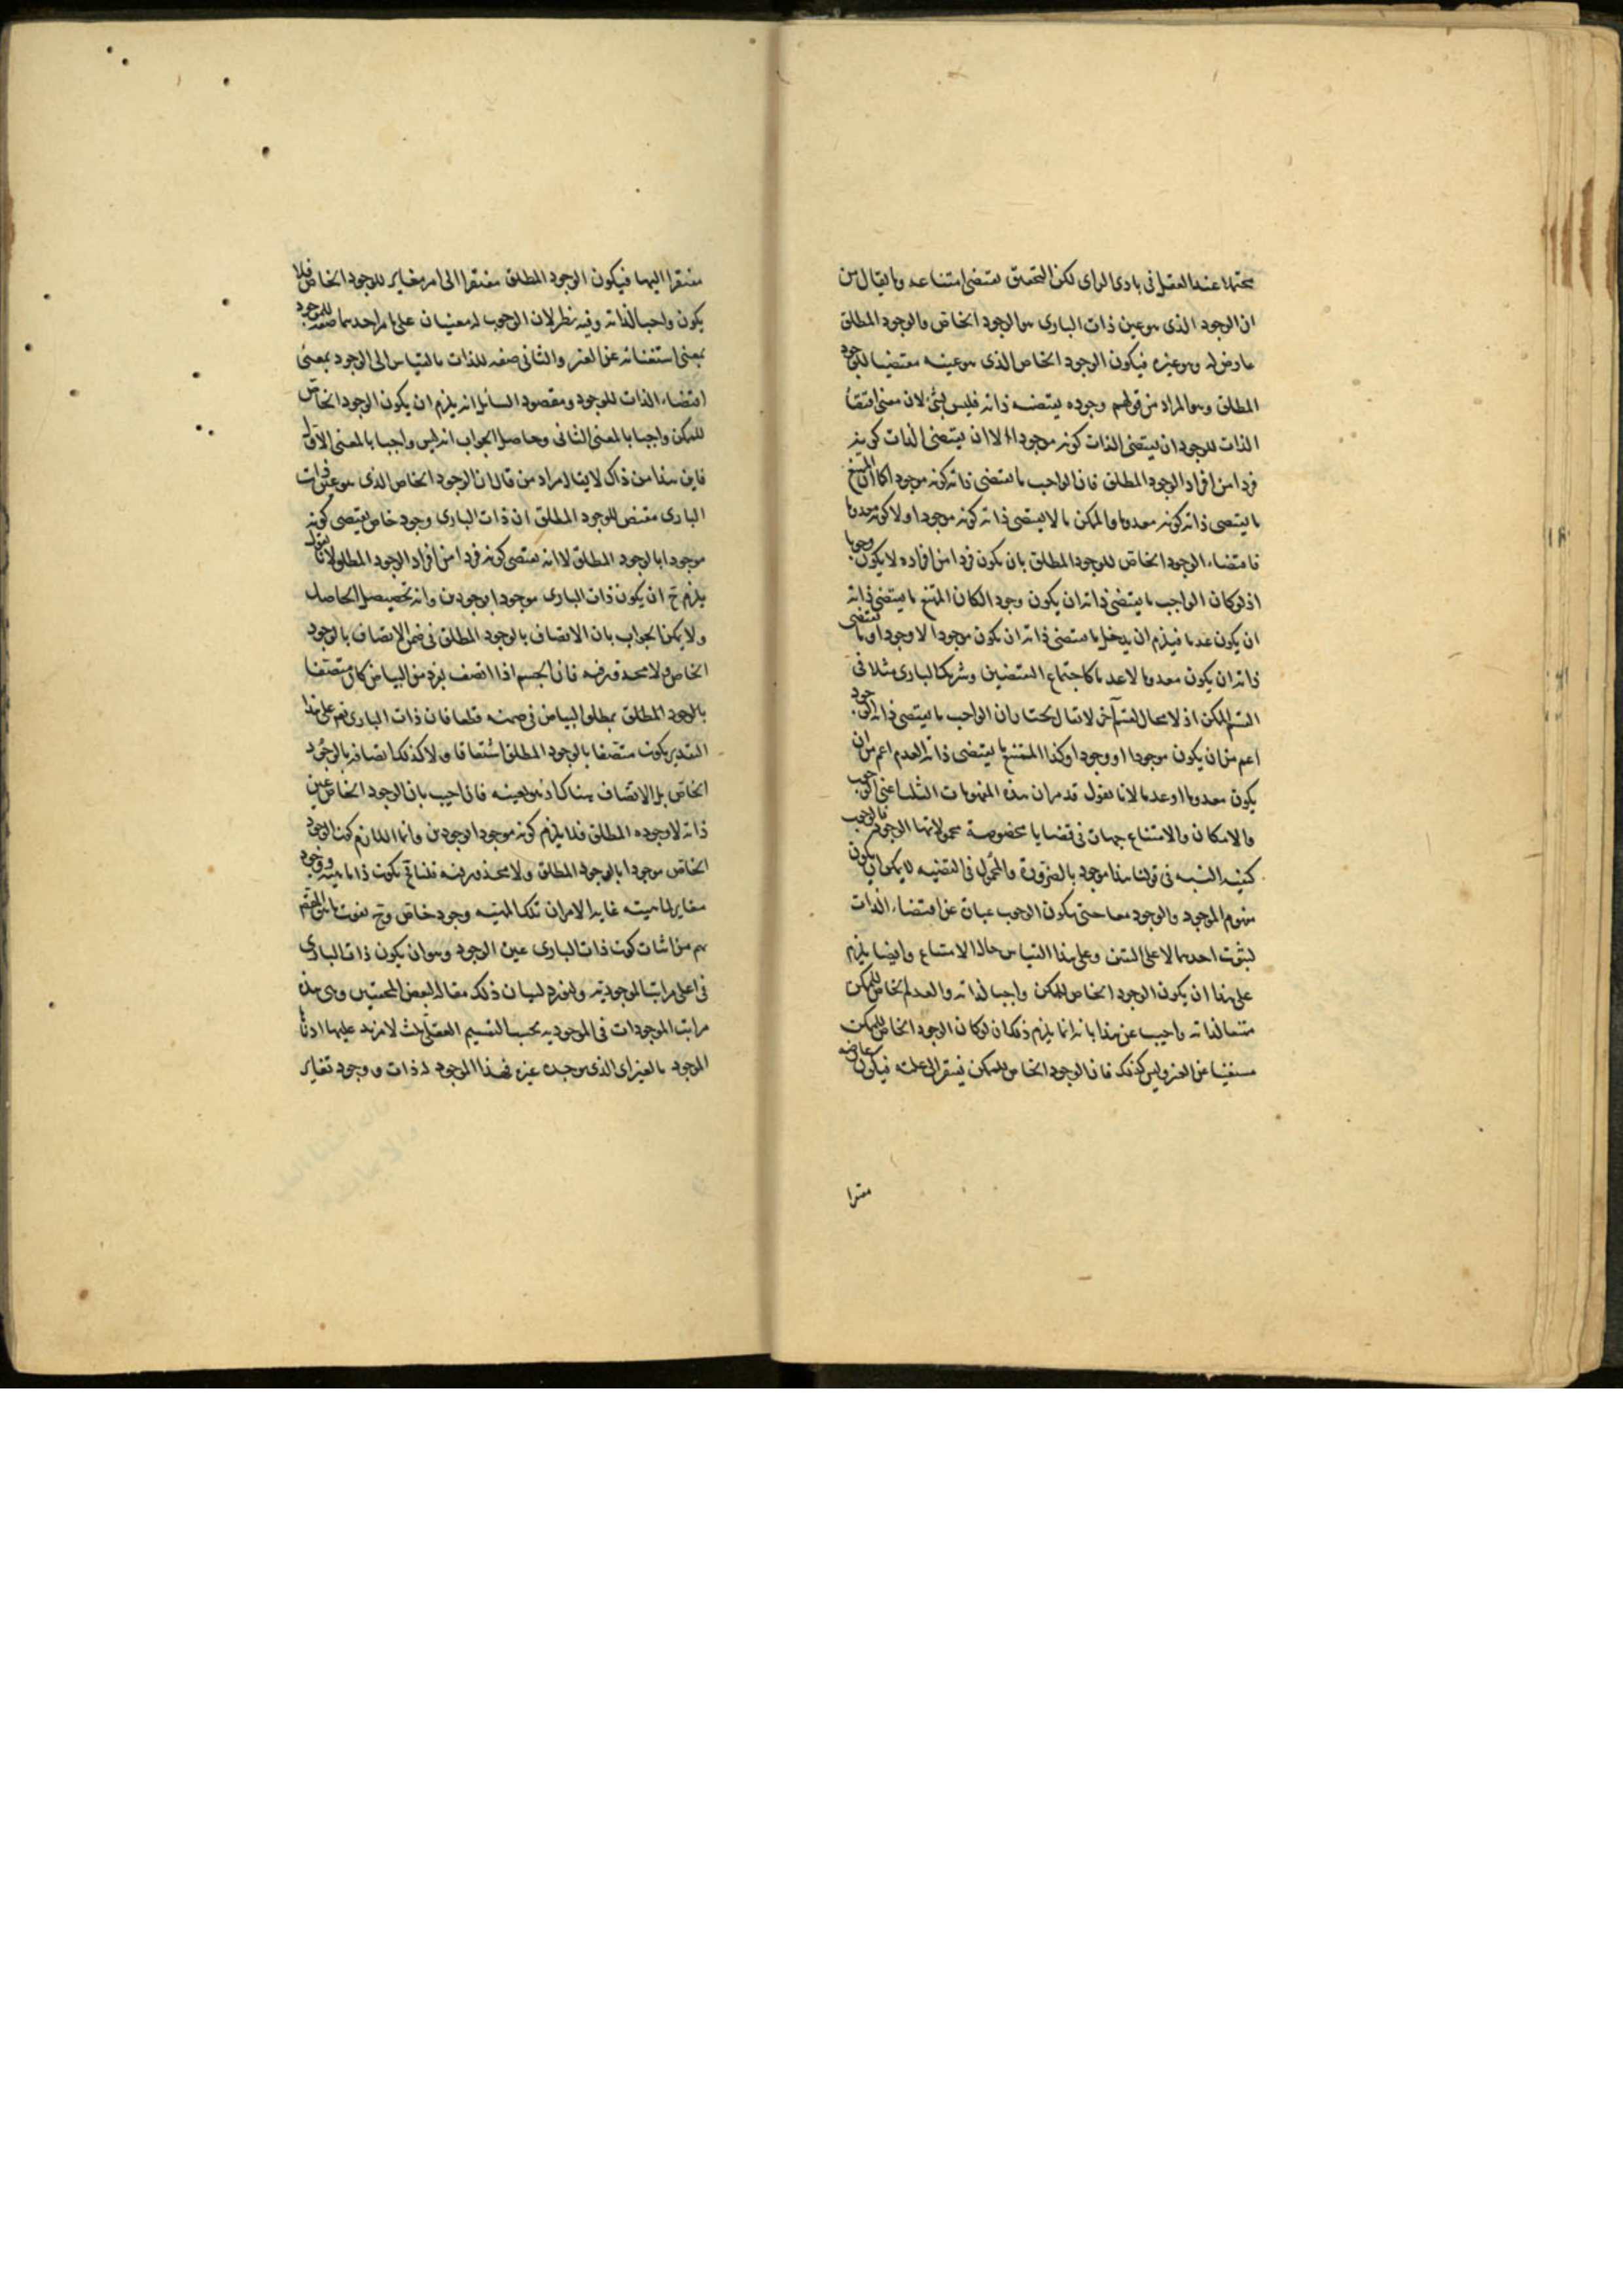 محتملا عند العقل فى بادى الراى لكن التحقيق يقتضى امتناعه وما يقال من
ان الوجود الذى هو عين ذات البارى هو الوجود الخاص والوجود المطلق
عارض له وهو غيره فيكون الوجود الخاص الذى هو عينه مقتضيا للوجود
المطلق وهو المراد من قولهم وجوده يقتضيه ذاته فليس بشئ لان معنى اقتضا
الذات للوجود ان يقتضى الذات كونه موجودا لا ان يقتضى الذات كونه
فردا من افراد الوجود المطلق فان الواجب ما يقتضى ذاته كونه موجودا كما ان الممتنع
ما يقتضى ذاته كونه معدوما والممكن ما لا يقتضى ذاته كونه موجودا ولا كونه معدوما
فاقتضاء الوجود الخاص للوجود المطلق بان يكون فردا من افراده لا يكون وجوبا
اذ لو كان الواجب ما يقتضى ذاته ان يكون وجودا لكان الممتنع ما يقتضى ذاته
ان يكون عدما فيلزم ان يدخل ما يقتضى ذاته ان يكون موجودا لا وجودا وما يقتضى
ذاته ان يكون معدوما لا عدما كاجتماع النقيضين وشريك البارى مثلا فى
القسم الممكن اذ لا مجال لقسم آخر لا يقال يختار ان الواجب ما يقتضى ذاته الوجود
اعم من ان يكون موجودا او وجودا وكذا الممتنع ما يقتضى ذاته العدم اعم من ان
يكون معدوما او عدما لانا نقول قد مر ان هذه المفهومات الثلث اعنى الوجوب
والامكان والامتناع جهات فى قضايا مخصوصة محمولاتها الوجود فالوجوب
كيفية النسبه فى قولنا هذا موجود بالضرورة والمحمول فى القضيه لا يمكن ان يكون
مفهوم الموجود والوجود معا حتى يكون الوجوب عبارة عن اقتضاء الذات
لثبوت احدهما لا على التعين وعلى هذا القياس حال الامتناع وايضا يلزم
على هذا ان يكون الوجود الخاص للممكن واجبا لذاته والعدم الخاص للممكن
ممتنعا لذاته واجيب عن هذا بانه انما يلزم ذلك ان لو كان الوجود الخاص للممكن
مستغنيا عن الغير وليس كذلك فان الوجود الخاص للممكن يفتقر الى علته فيكون عارضه
مفتقرا
مفتقرا اليها فيكون الوجود المطلق مفتقرا الى امر مغاير للوجود الخاص فلا
يكون واجبا لذاته وفيه نظر لان الوجوب له معنيان على ما مر احدهما صفة للوجود
بمعنى استغنائه عن الغير والثانى صفه للذات بالقياس الى الوجود بمعنى
اقتضاء الذات للوجود ومقصود السائل انه يلزم ان يكون الوجود الخاص
للممكن واجبا بالمعنى الثانى وحاصل الجواب انه ليس واجبا بالمعنى الاول
فاين هذا من ذاك لا يقال مراد من قال ان الوجود الخاص الذى هو عين ذات
البارى مقتض للوجود المطلق ان ذات البارى وجود خاص يقتضى كونه
موجودا بالوجود المطلق لا انه يقتضى كونه فردا من افراد الوجود المطلق لانا نقول
يلزم ح ان يكون ذات البارى موجودا بوجودين وانه تحصيل الحاصل
ولا يمكن الجواب بان الاتصاف بالوجود المطلق فى ضمن الاتصاف بالوجود
الخاص ولا محذور فيه فان الجسم اذا اتصف بفرد من البياض كان متصفا
بالوجود المطلق بمطلق البياض فى ضمنه قطعا فان ذات البارى نعم على هذا
التقدير يكون متصفا بالوجود المطلق اشتقاقا ولا كذلك اتصافه بالوجود
الخاص بل الاتصاف هناك اذ هو بعينه فان اجيب بان الوجود الخاص عين
ذاته لا وجوده المطلق فلا يلزم كونه موجودا بوجودين وانما اللازم كون الوجود
الخاص موجودا بالوجود المطلق ولا محذور فيه قلنا فح يكون ذا ماهيه ووجود
مغاير لماهيته غاية الامر ان تلك الماهيه وجود خاص وح يفوت ما هو المقصود
لهم من اثبات كون ذات البارى عين الوجود وهو ان يكون ذات البارى
فى اعلى مراتب الموجوديه ولنورد لبيان ذلك مقالة لبعض المحققين وهى هذه
مراتب الموجودات فى الموجوديه بحسب التقسيم العقلى ثلث لا مزيد عليها ادناها
الموجود بالغير اى الذى يوجده غيره فهذا الموجود له ذات ووجود تغاير